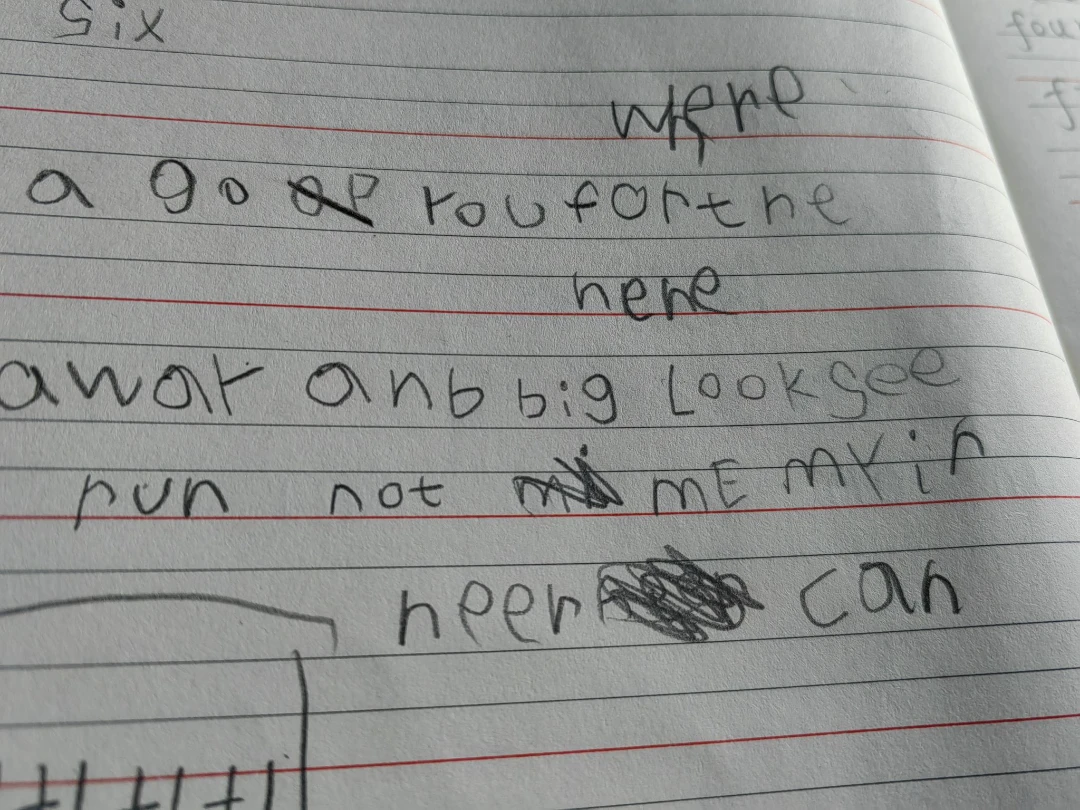 six
were
a go rou for the
here
awar anb big Look see
run not mE mr in
heer can
fou
f